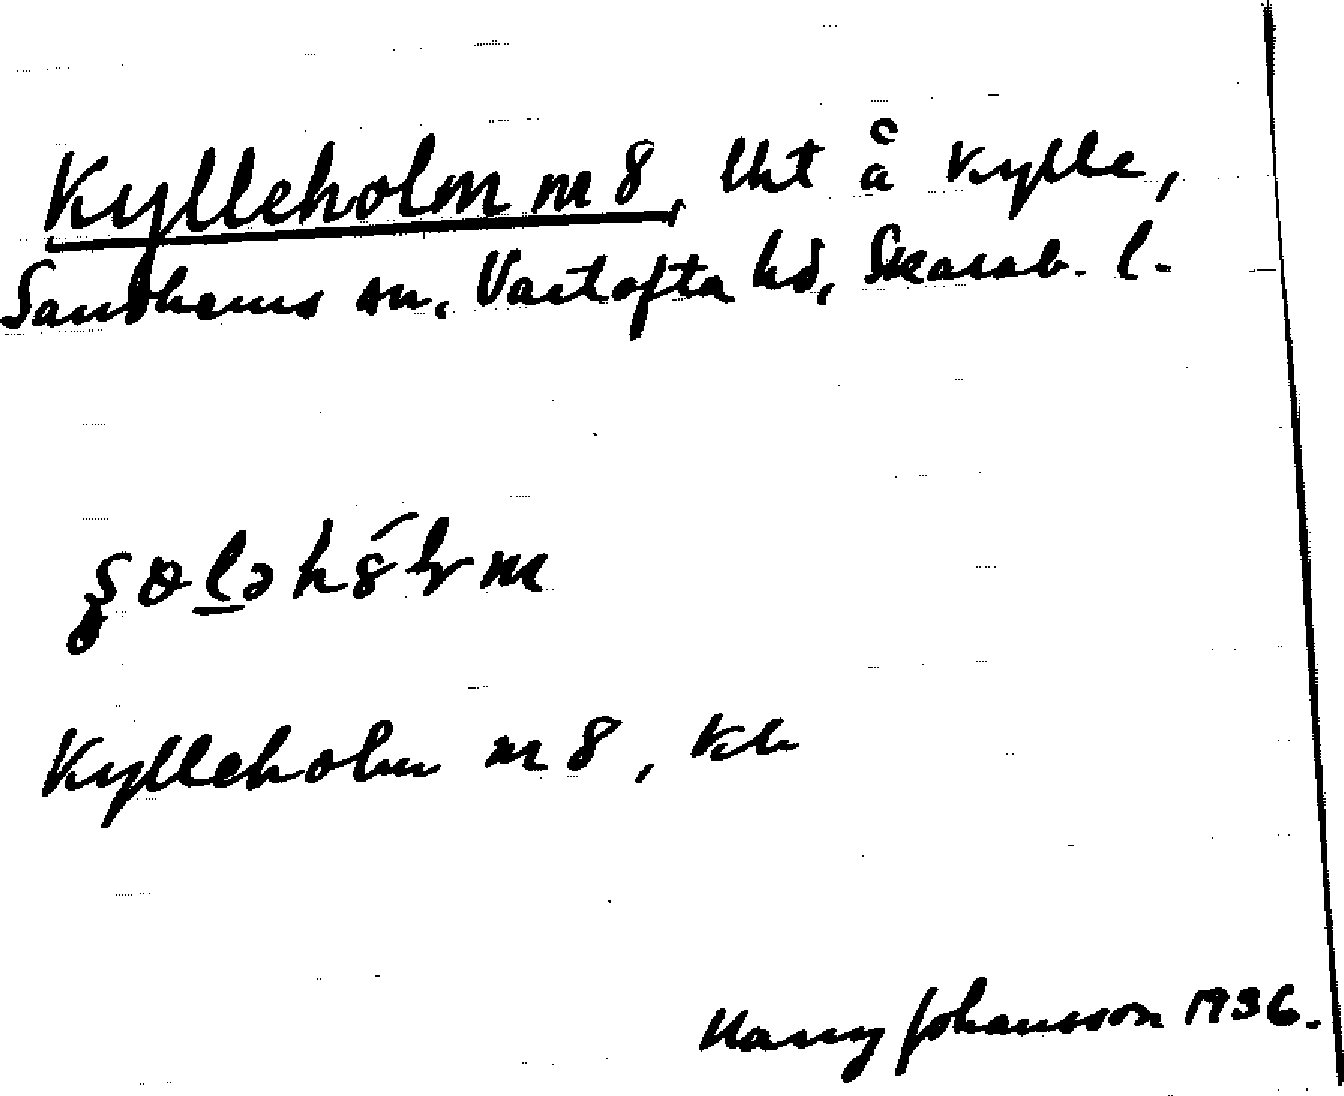 Kylleholm m 8, lht å Kylle,
Sandhems sn, Vartofta hd, Skarab. l.
Kylleholm m 8, kk
Harry Johansson 1936.